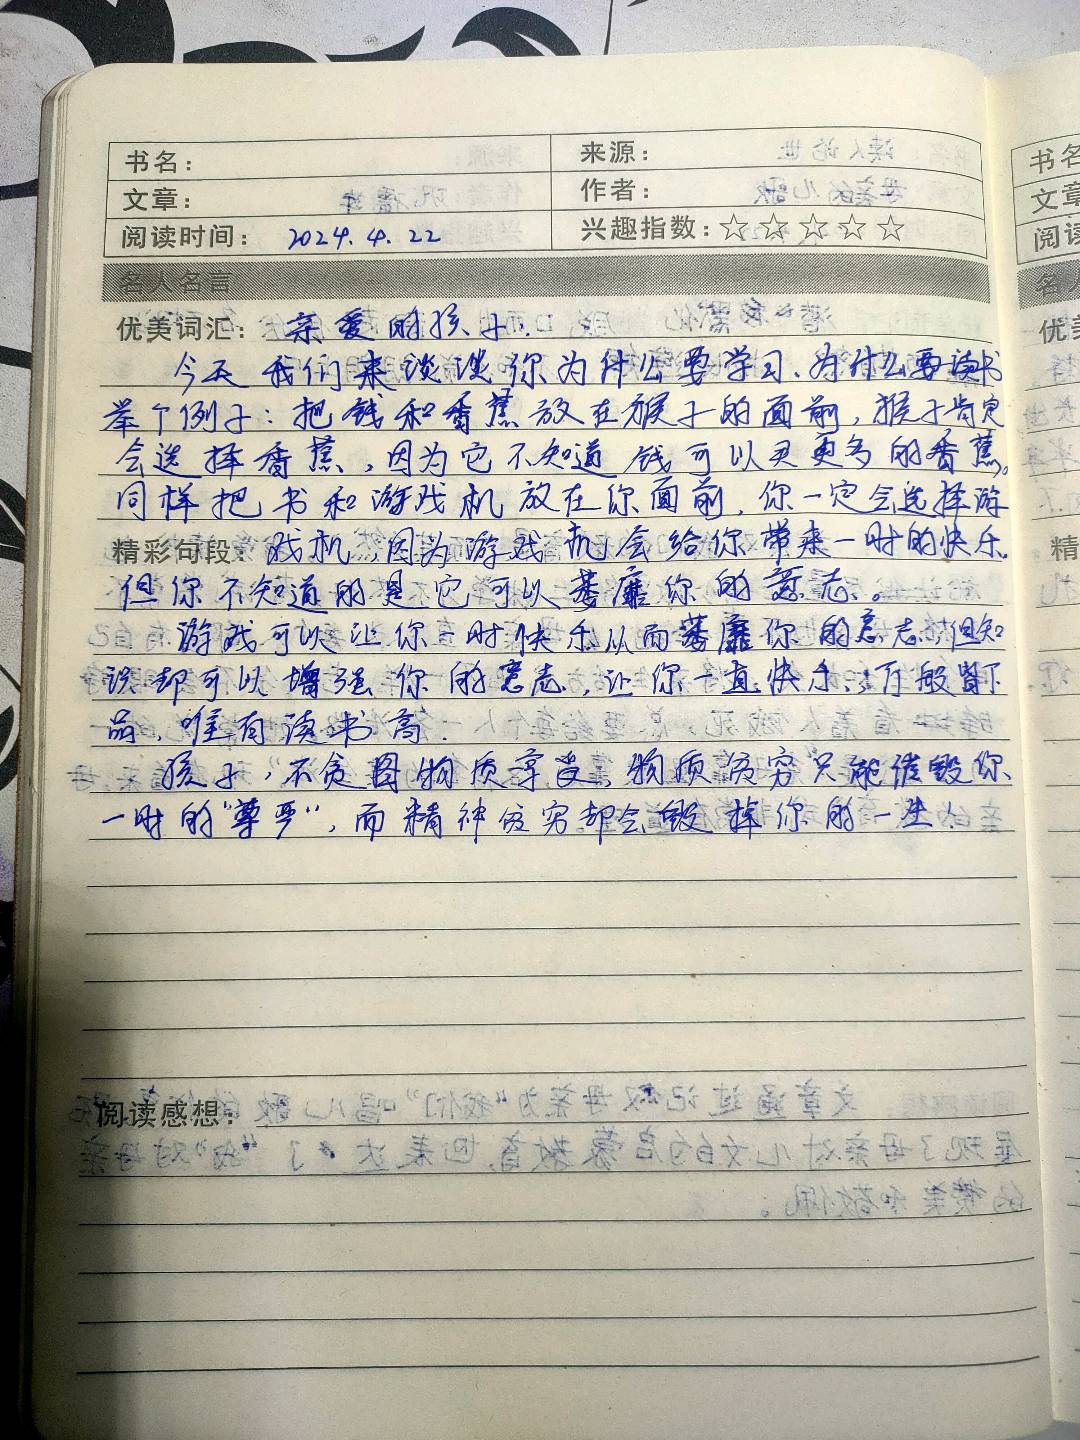 书名：
来源：
文章：
作者：
阅读时间： 2024.4.22
兴趣指数：☆☆☆☆☆
名人名言
优美词汇： 亲爱的孩子.
今天我们来谈谈你为什么要学习、为什么要读书
举个例子：把钱和香蕉放在猴子的面前，猴子肯定
会选择香蕉，因为它不知道钱可以买更多的香蕉。
同样把书和游戏机放在你面前，你一定会选择游
精彩句段：戏机，因为游戏机会给你带来一时的快乐.
但你不知道的是它可以萎靡你的意志。
游戏可以让你一时快乐从而萎靡你的意志，但知
识却可以增强你的意志，让你一直快乐.万般皆下
品，唯有读书高.
孩子，不贪图物质享受，物质贫穷只能摧毁你
一时的“尊严”，而精神贫穷却会毁掉你的一生.
阅读感想：
书名
文章
阅读
名人
优美
精